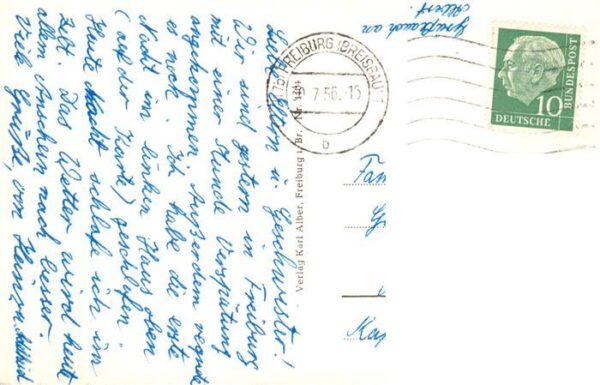 Liebe Eltern u. Geschwister!
Wir sind gestern in Freiburg
mit einer Stunde Verspätung
angekommen. Außerdem regnete
es noch. Ich habe die erste
Nacht im linken Haus oben
(auf der Karte) geschlafen
Heute Nacht schlafe ich im
Zelt. Das Wetter wird heute
allem Anschein nach besser.
Viele Grüße, von Heinz
auch an
Albert.
FREIBURG (BREISGAU)
7.56.-15
b
10
DEUTSCHE
BUNDESPOST
Verlag Karl Alber, Freiburg i. Br.
Fam